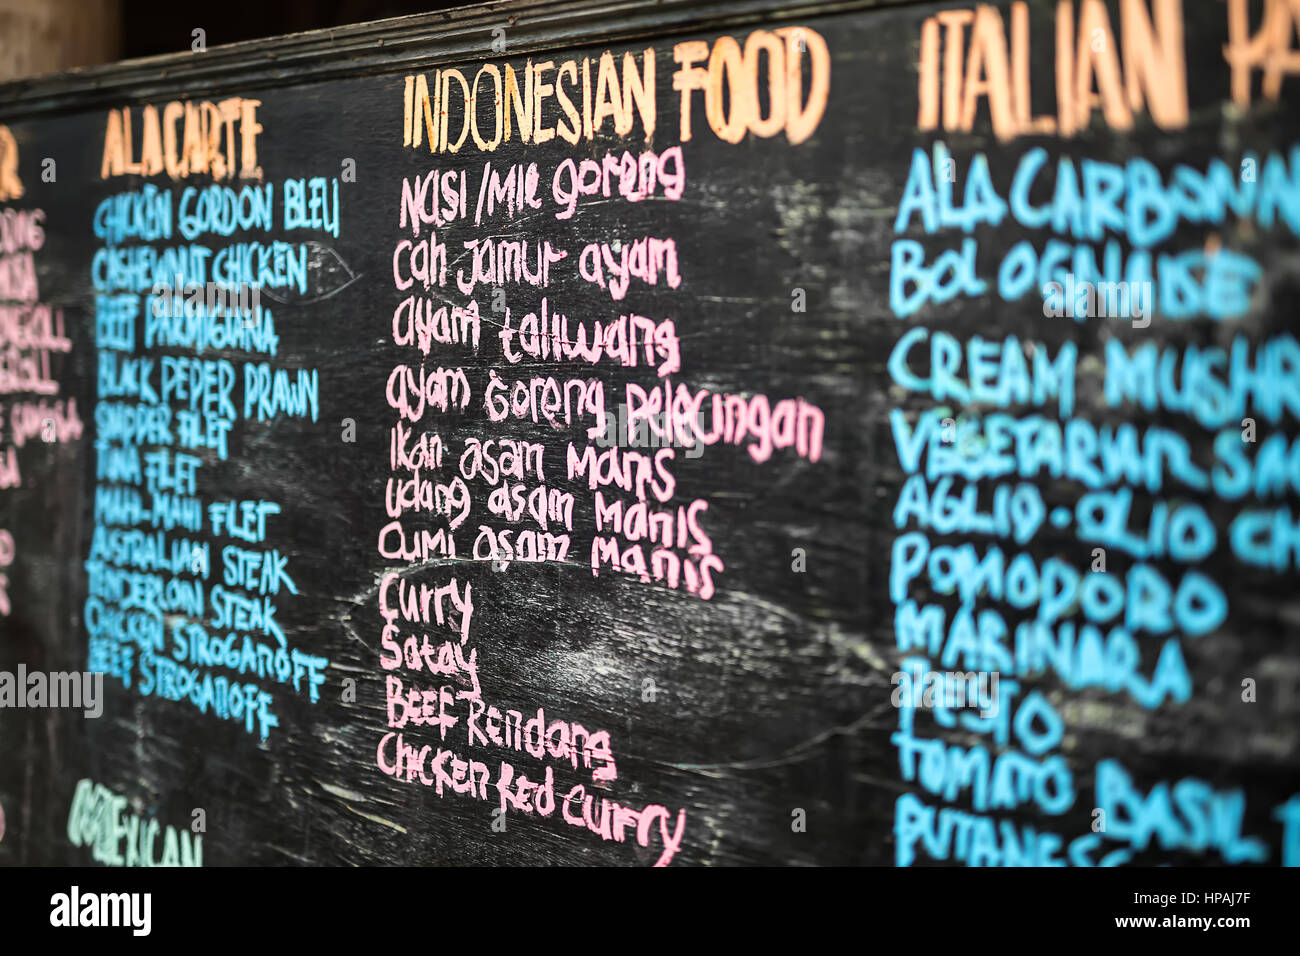 ALACARTE
CHICKEN GORDON BLEU
CASHEWNUT CHICKEN
BEEF PARMIGIANA
BLACK PEPER PRAWN
SNAPPER FILET
TUNA FILET
MAHI-MAHI FLET
AUSTRALIAN STEAK
TENDERLOIN STEAK
CHICKEN STROGANOFF
BEEF STROGANOFF
INDONESIAN FOOD
NASI/MIE goreng
cah jamur ayam
ayam taliwang
ayam Goreng pelecingan
Ikan asam manis
udang asam manis
Cumi asam manis
Curry
Satay
BEEF RENdang
CHICKEN RED CURRY
ITALIAN
ALA CARBONN
BOLOGNAISE
CREAM MUSHR
VEGETARIAN
AGLIO-OLIO CH
POMODORO
MARINARA
PESTO
TOMATO BASIL
PUTANES
alamy
Image ID: HPAJ7F
www.alamy.com